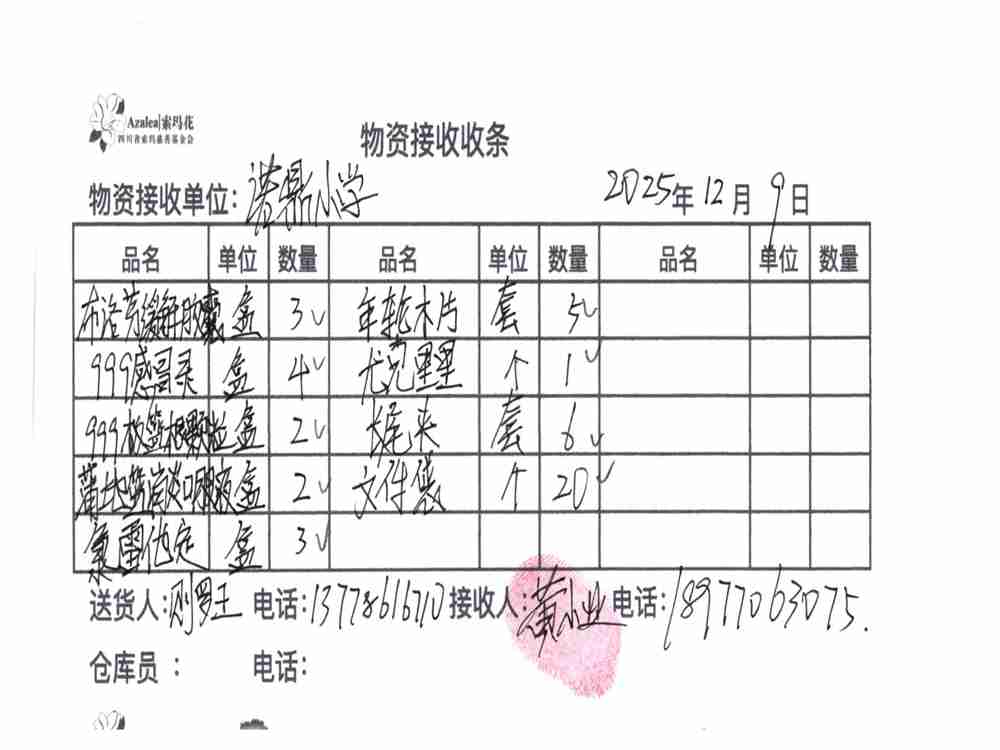 Azalea|索玛花
四川省索玛慈善基金会
物资接收收条
物资接收单位: 小学 2025年12月9日
品名 单位 数量 品名 单位 数量 品名 单位 数量
布洛芬缓解胶囊 盒 3 年轮木片 套 5
999感冒灵 盒 4 尤克里里 个 1
999板蓝根颗粒 盒 2 长尾夹 套 6
蒲地蓝消炎口服液 盒 2 文件袋 个 20
氯雷他定 盒 3
送货人: 电话:13778616710 接收人: 电话:18977063075.
仓库员 : 电话: